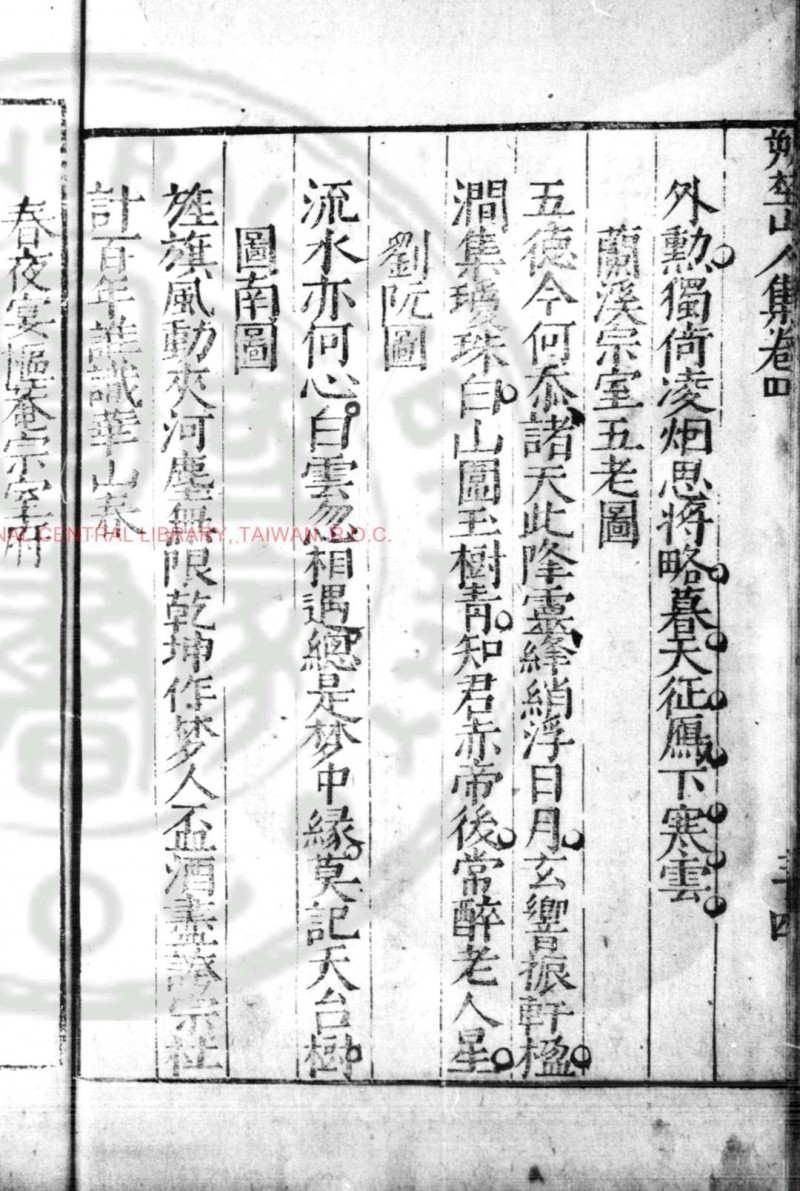 山人集卷四
外勲獨倚凌烟思將略暮天征鴈下寒雲
蘭溪宗室五老圖
五德今何忝諸天此降靈絳綃浮日月玄響振軒楹
澗集瑷珠白山圍玉樹青知君赤帝後常醉老人星
劉阮圖
流水亦何心白雲忽相遇總是梦中緣莫記天台樹
圖南圖
旌旗風動夾河塵無限乾坤作梦人盃酒盡誇宗社
計百年誰識華山春
春夜宴樞菴宗室
NAL CENTRAL LIBRARY, TAIWAN. R.O.C.